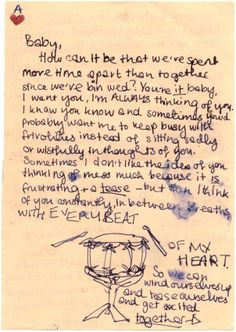 A
Baby,
How can it be that we've spent
more time apart than together
since we've bin wed? You're it baby,
I want you, I'm ALWAYS thinking of you.
I know you know and sometimes you'd
probably want me to keep busy with
frivolities instead of sitting sadly
or wistfully in thoughts of you.
Sometimes I don't like the idea of you
thinking of me so much because it is
frustrating - a tease - but I think
of you constantly, in between breaths,
with EVERY BEAT
OF MY
HEART.
So we can
wind ourselves up
and tease ourselves
and get excited
together